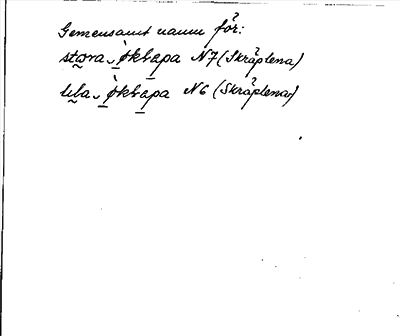 Gemensamt namn för:
stora, ökbapa N7 (Skräplena)
lila, ökbapa N6 (Skräplena)